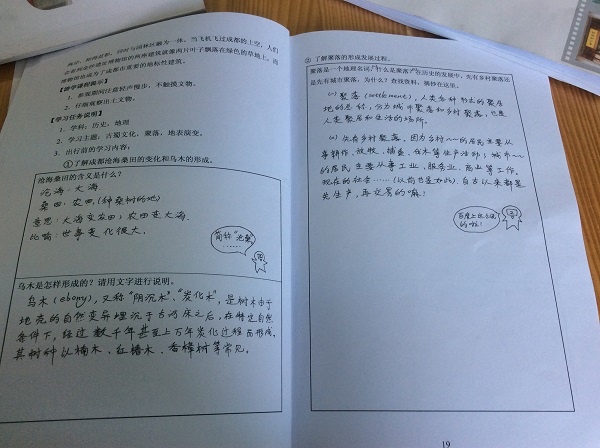 简洁、独特新奇，同时与园林以融为一体。当飞机飞过成都的上空，人们
会看到金沙遗址博物馆的两座建筑就像两片叶子飘落在绿色的草地上，而
博物馆也成为了成都市重要的地标性建筑。
【游学课程提示】
1. 参观期间注意轻声慢步，不触摸文物。
2. 仔细观察出土文物。
【学习任务说明】
1. 学科：历史；地理
2. 学习主题：古蜀文化、聚落、地表演变。
3. 出行前的学习内容：
①了解成都沧海桑田的变化和乌木的形成。
沧海桑田的含义是什么？
沧海：大海
桑田：农田，(种桑树的地)
意思：大海变农田；农田变大海。
比喻：世事变化很大。
简称"沧桑"
……
乌木是怎样形成的？请用文字进行说明。
乌木(ebony)，又称"阴沉木"、"炭化木"，是树木由于
地壳的自然变异埋沉于古河床之后，在特定自然
条件下，经过数千年甚至上万年炭化过程而形成，
其树种以楠木、红椿木、香樟树等常见。
② 了解聚落的形成发展过程。
聚落是一个地理名词，什么是聚落？在历史的发展中，先有乡村聚落还
是先有城市聚落，为什么？查找资料，摘抄在这里。
(1) 聚落(settlement)，人类各种形式的聚居
地的总称，分为城市聚落和乡村聚落，也是
人类聚居和生活的场所。
(2) 先有乡村聚落，因为乡村~~的居民主要从
事耕作、放牧、捕鱼、伐木等生产活动；城市~~
的居民主要从事工业、服务业、商业等工作。
现在的社会……(以前也是如此)，自古以来都是
先生产，再交易的嘛！
百度上这么说
的啦！
19